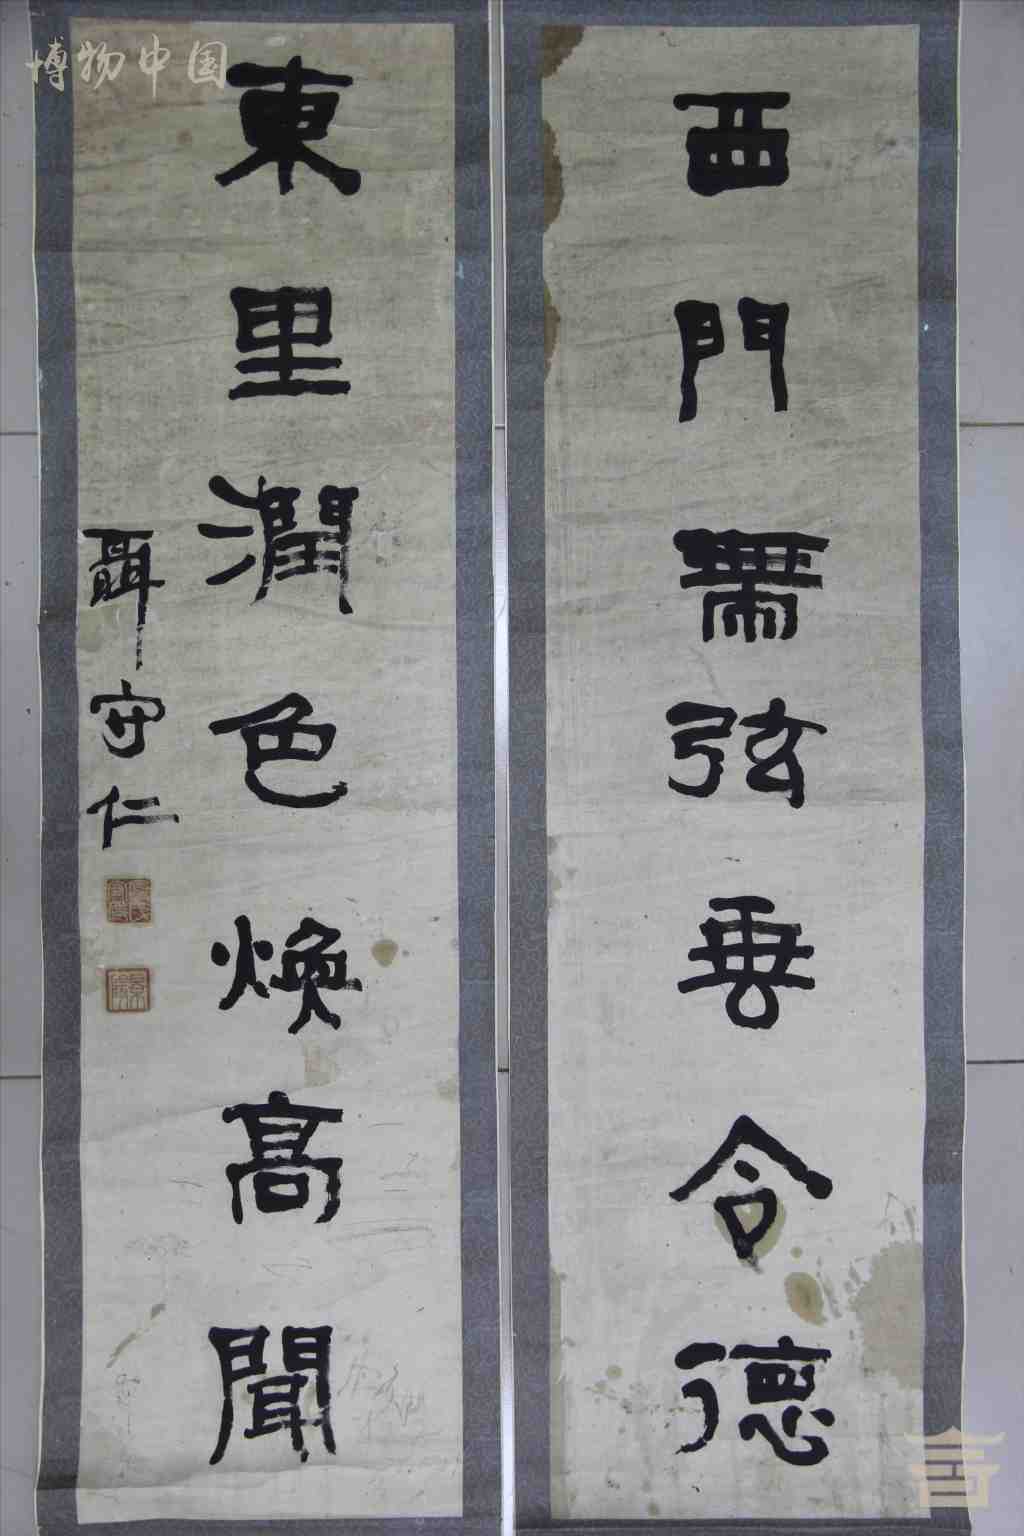 博物中国
西門帶弦垂令德
東里潤色煥高聞
聶守仁